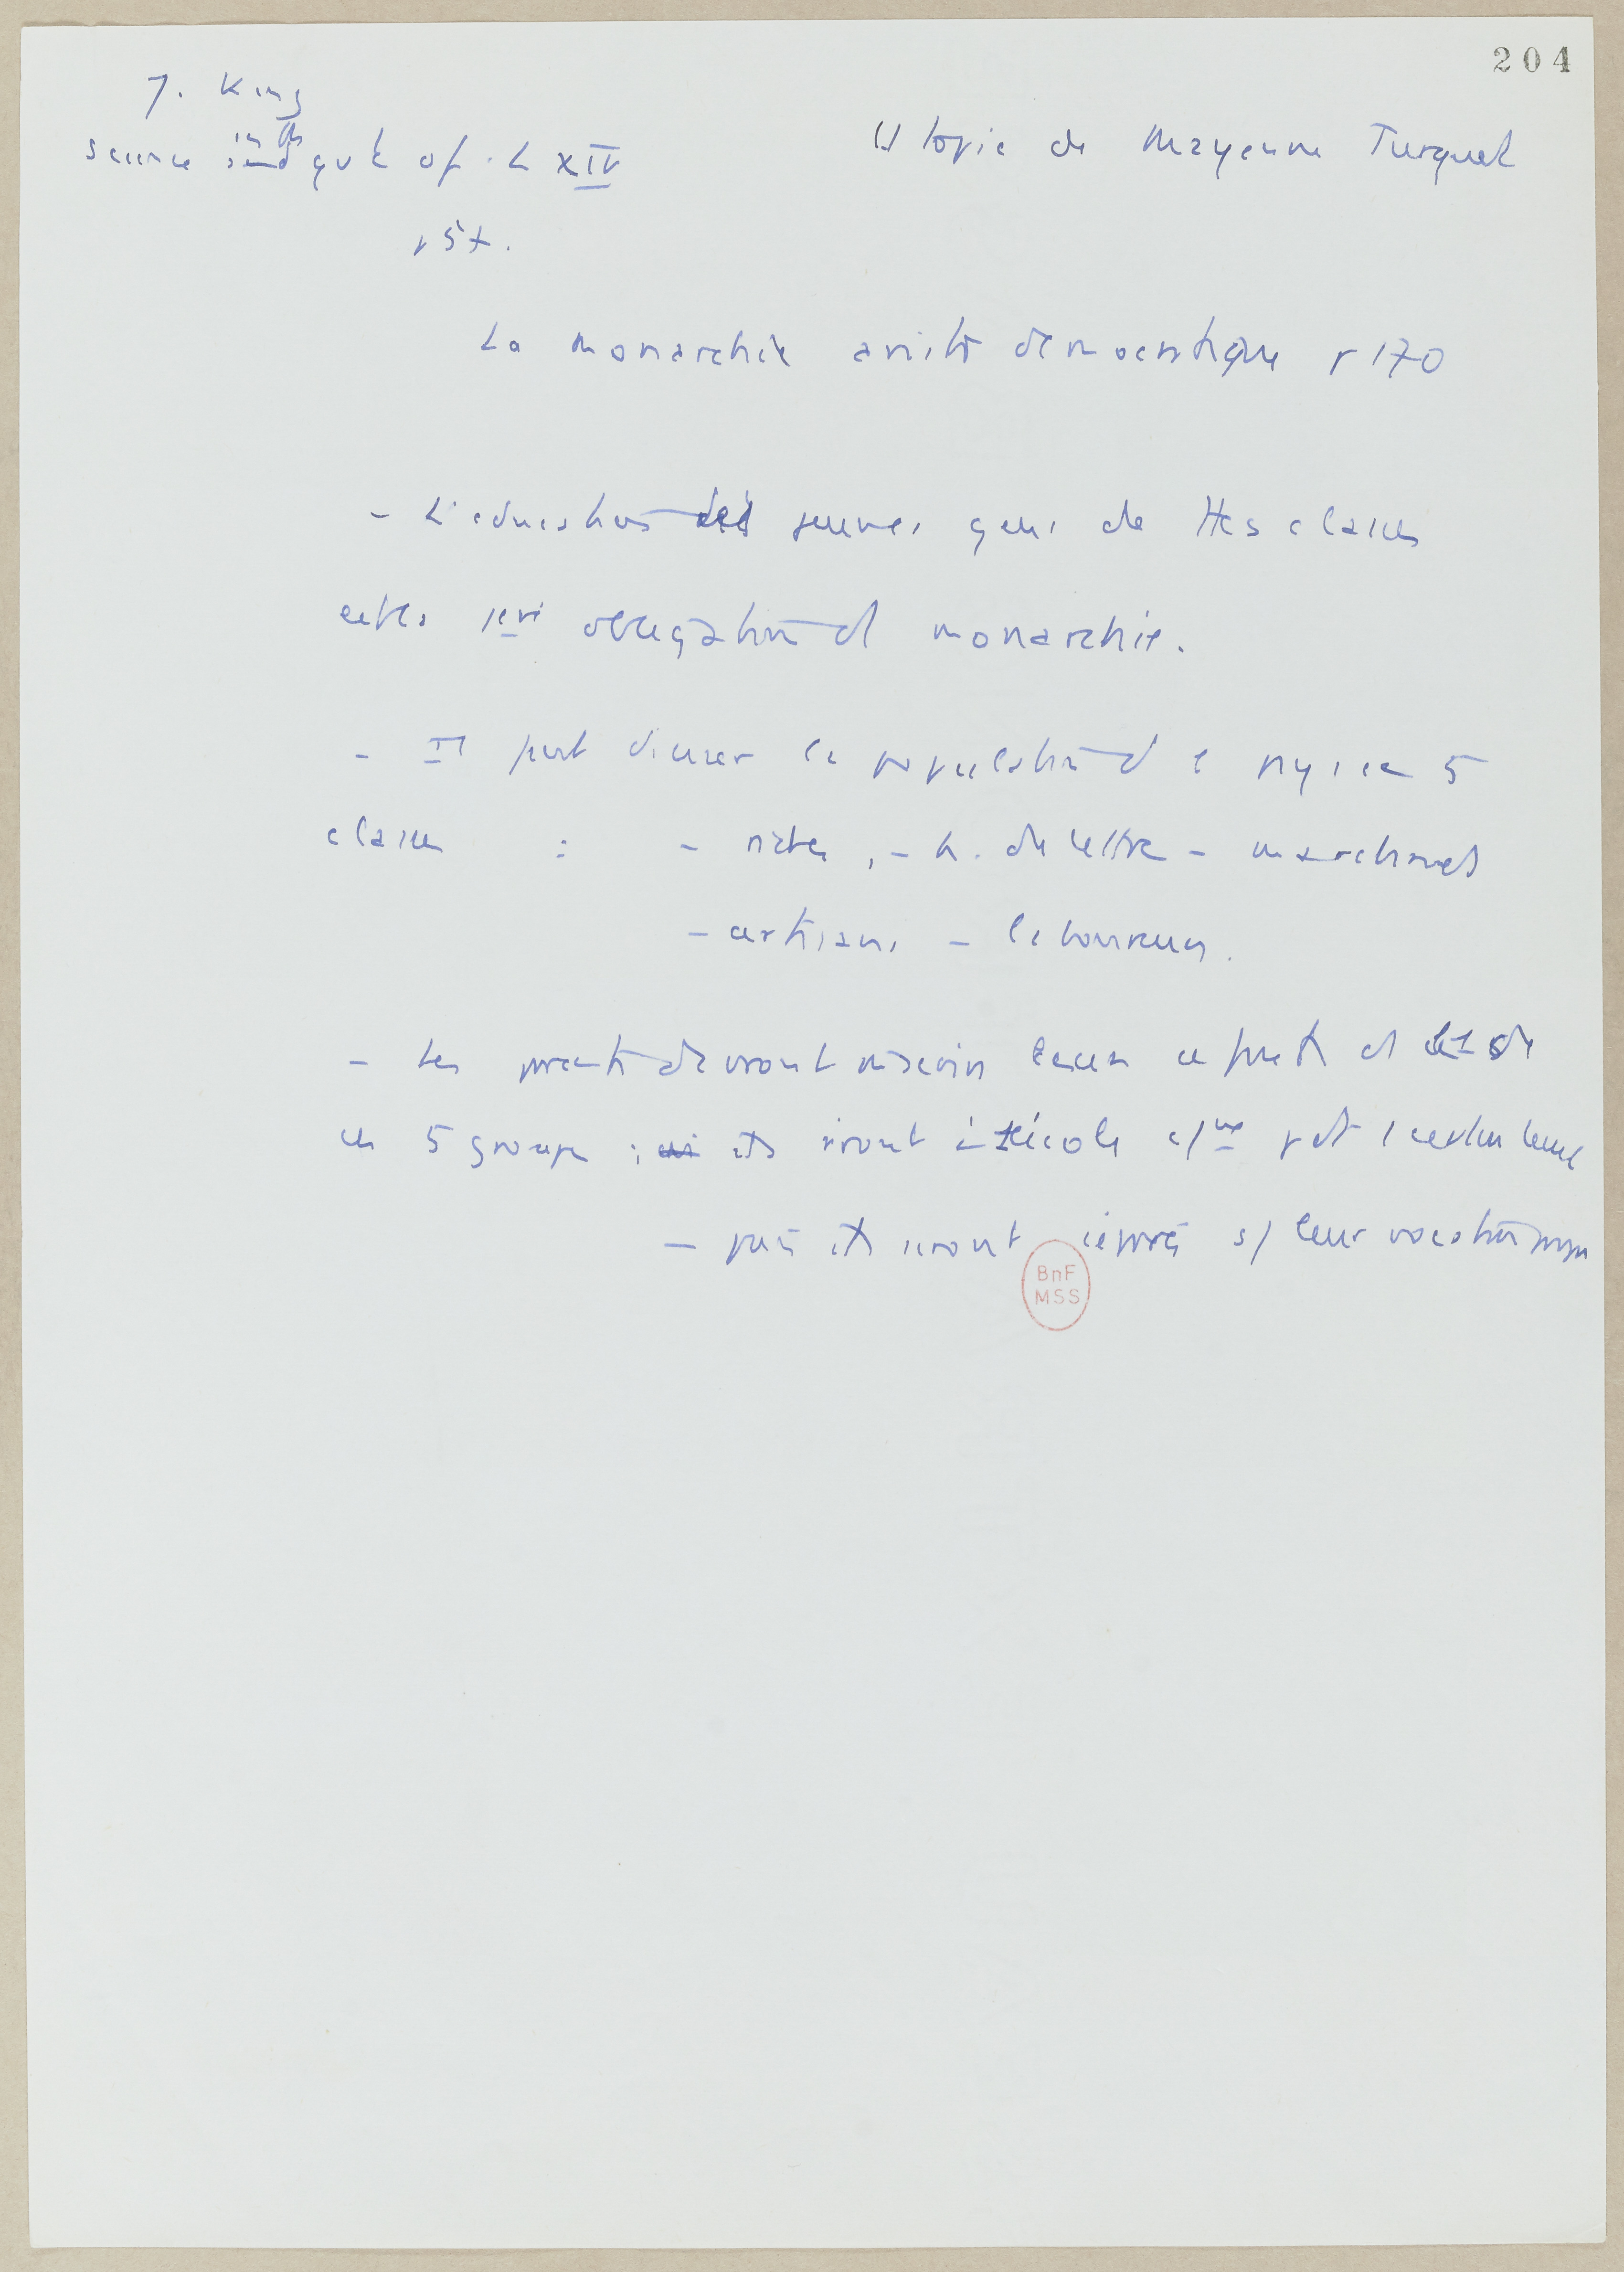 204
J. King
science in the gvt of L XIV
p 57.
Utopie de Mayenne Turquet
La monarchie aristo démocratique p 170
- L'education des jeunes gens de ttes classes
est obligation d monarchie.
- Il faut diviser la population d le pays en 5
classes : - riches, - h. de lettre - marchands
- artisans - laboureurs.
- Les parents devront inscrire leurs enfants ds
ces 5 groupes : ils iront à l'école
- puis ils seront leur vocation
BnF
MSS